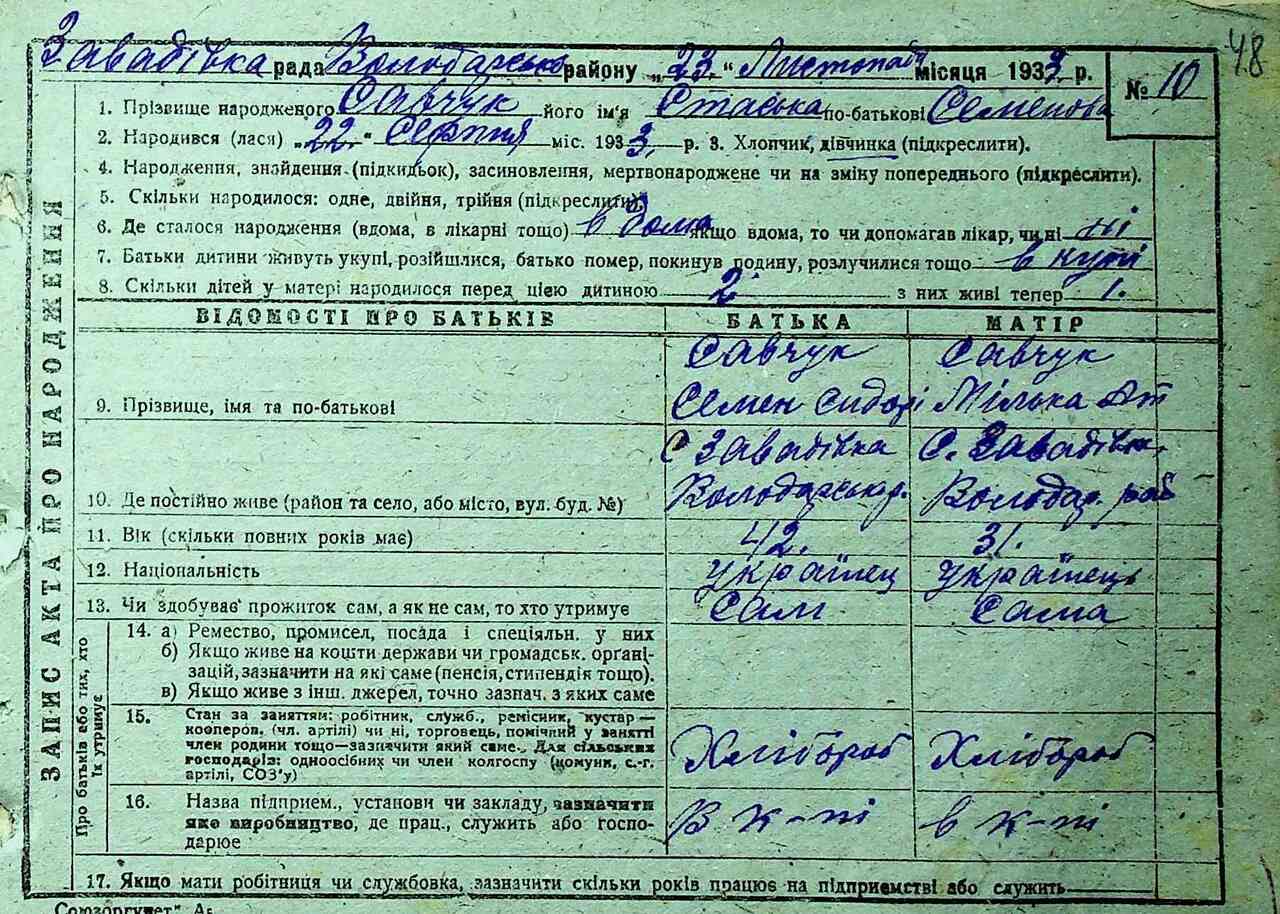 48
Завадівка рада Володарсько району „23.“ Листопада місяця 1933. р.
№ 10
1. Прізвище народженого Савчук його ім'я Стаська по-батькові Семенова
2. Народився (лася) „22.“ Серпня міс. 1933. р. 3. Хлопчик, дівчинка (підкреслити).
4. Народження, знайдення (підкидьок), засиновлення, мертвонароджене чи на зміну попереднього (підкреслити).
5. Скільки народилося: одне, двійня, трійня (підкреслити).
6. Де сталося народження (вдома, в лікарні тощо) в дома якщо вдома, то чи допомагав лікар, чи ні ні
7. Батьки дитини живуть укупі, розійшлися, батько помер, покинув родину, розлучилися тощо в купі
8. Скільки дітей у матері народилося перед цією дитиною 2 з них живі тепер 1.
ВІДОМОСТІ ПРО БАТЬКІВ БАТЬКА МАТІР
Савчук Савчук
9. Прізвище, імя та по-батькові Семен Сидорі Мілька Ант
С Завадівка С. Завадівка
10. Де постійно живе (район та село, або місто, вул. буд. №) Володарськ р. Володар. рай
11. Вік (скільки повних років має) 42. 31.
12. Національність українец українець
13. Чи здобуває прожиток сам, а як не сам, то хто утримує Сам Сама
14. а) Ремество, промисел, посада і спеціяльн. у них
б) Якщо живе на кошти держави чи громадськ. органі-
зацій, зазначити на які саме (пенсія, стипендія тощо).
в) Якщо живе з інш. джерел, точно зазнач. з яких саме
15. Стан за заняттям: робітник, служб., ремісник, кустар—
кооперов. (чл. артілі) чи ні, торговець, помічний у занятті
член родини тощо—зазначити який саме. Для сільських
господарів: одноосібних чи член колгоспу (комуни, с.-г.
артілі, СОЗ'у)
Хлібороб Хлібороб
16. Назва підприєм., установи чи закладу, зазначити
яке виробництво, де прац., служить або госпо-
дарює
В к-пі в к-пі
17. Якщо мати робітниця чи службовка, зазначити скільки років працює на підприємстві або служить
ЗАПИС АКТА ПРО НАРОДЖЕННЯ
Про батьків або тих, хто
їх утримує